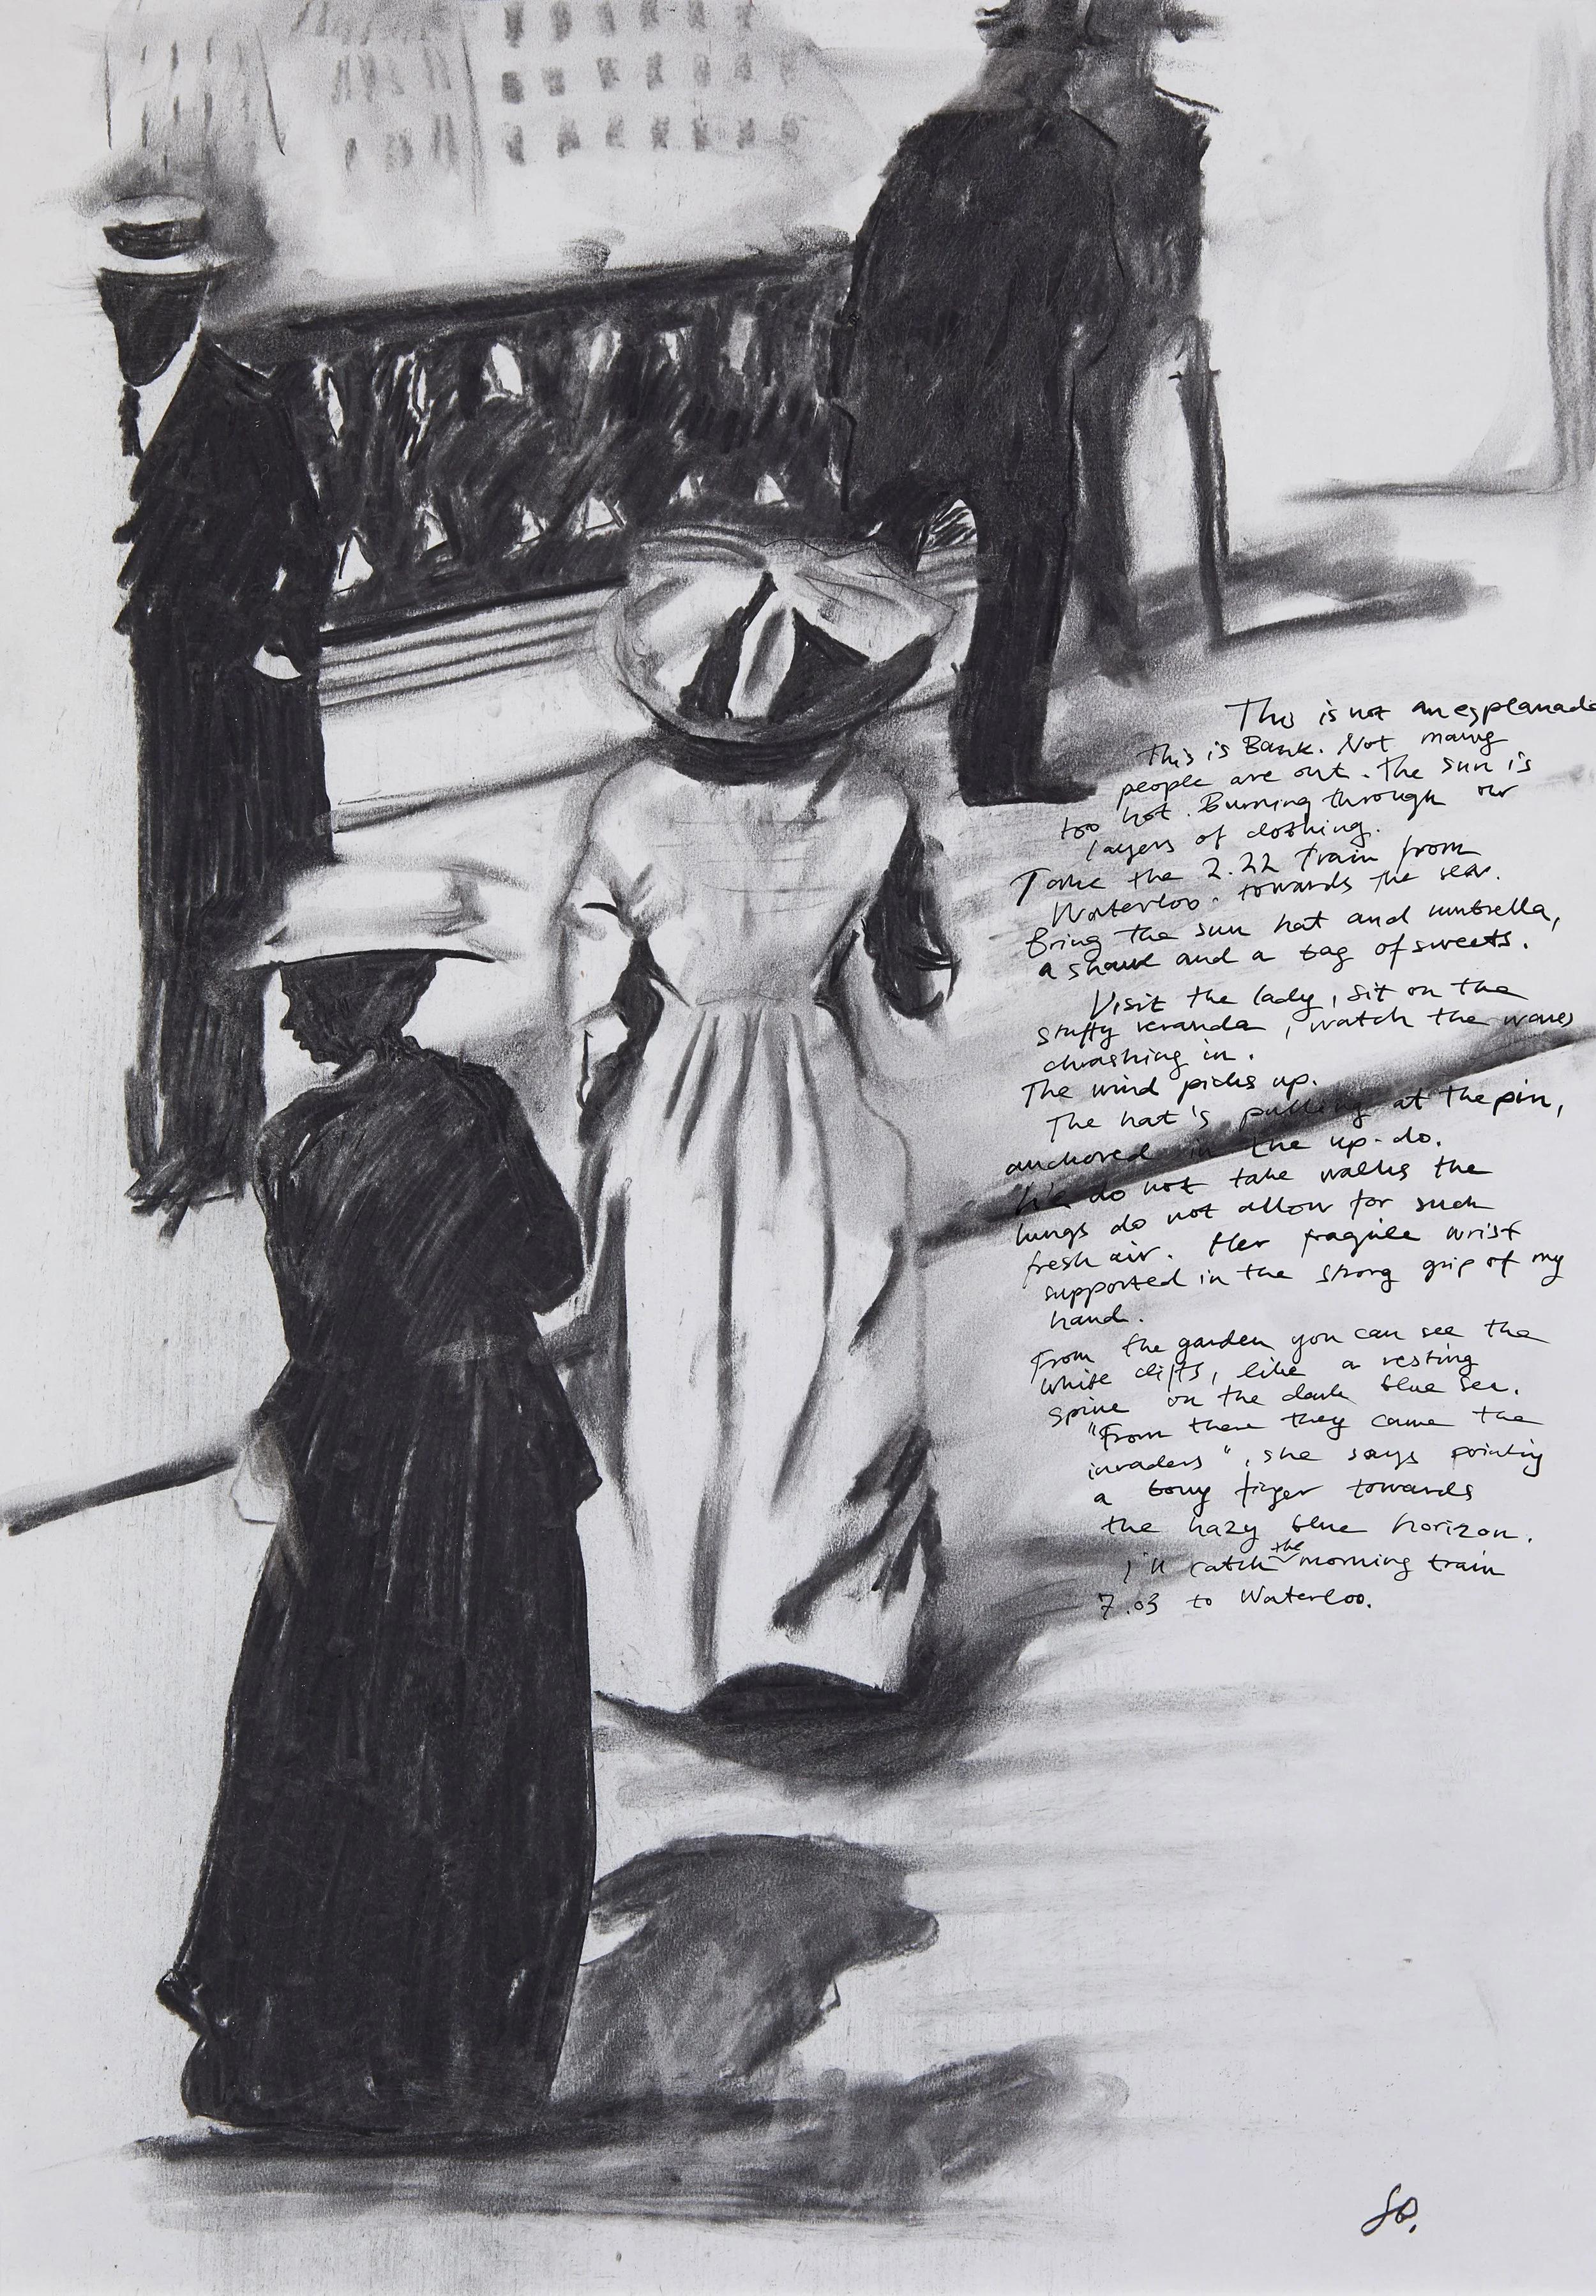 This is not an esplanade
This is Bank. Not many
people are out. The sun is
too hot. Burning through our
layers of clothing.
Take the 2.22 train from
Waterloo. towards the sea.
Bring the sun hat and umbrella,
a shawl and a bag of sweets.
Visit the lady, sit on the
stuffy veranda, watch the waves
chrashing in.
The wind picks up.
The hat's pulling at the pin,
anchored in the up-do.
We do not take walks the
lungs do not allow for such
fresh air. Her fragile wrist
supported in the strong grip of my
hand.
From the garden you can see the
white cliffs, like a resting
spine on the dark blue sea.
"From there they came the
invaders", she says pointing
a bony finger towards
the hazy blue horizon.
I'll catch the morning train
7.03 to Waterloo.